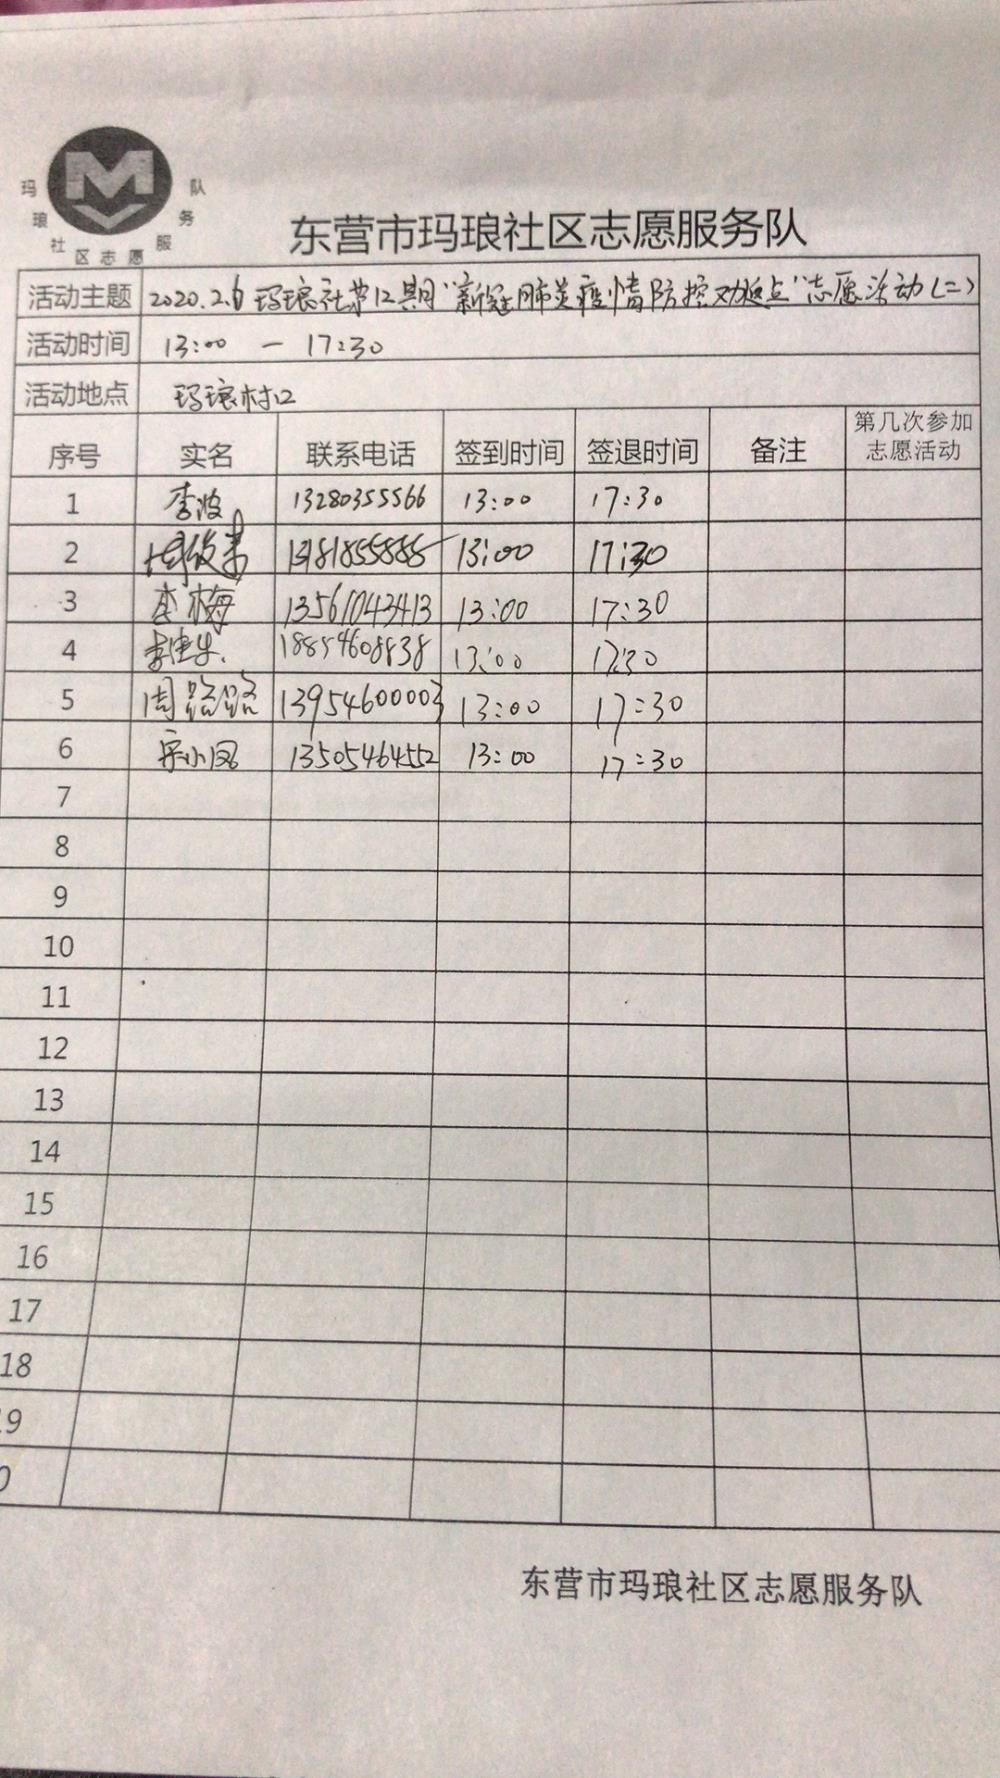 M
玛琅社区志愿服务队
东营市玛琅社区志愿服务队
活动主题 2020.2.6 玛琅社第12期"新冠肺炎疫情防控劝返点"志愿活动(二)
活动时间 13:00 — 17:30
活动地点 玛琅村口
序号 实名 联系电话 签到时间 签退时间 备注 第几次参加
志愿活动
1 李波 13280355566 13:00 17:30
2 13:00 17:30
3 李梅 13561043413 13:00 17:30
4 18854608838 13:00 17:30
5 周路路 13954600003 13:00 17:30
6 宋小凤 13505464552 13:00 17:30
7
8
9
10
11
12
13
14
15
16
17
18
19
0
东营市玛琅社区志愿服务队